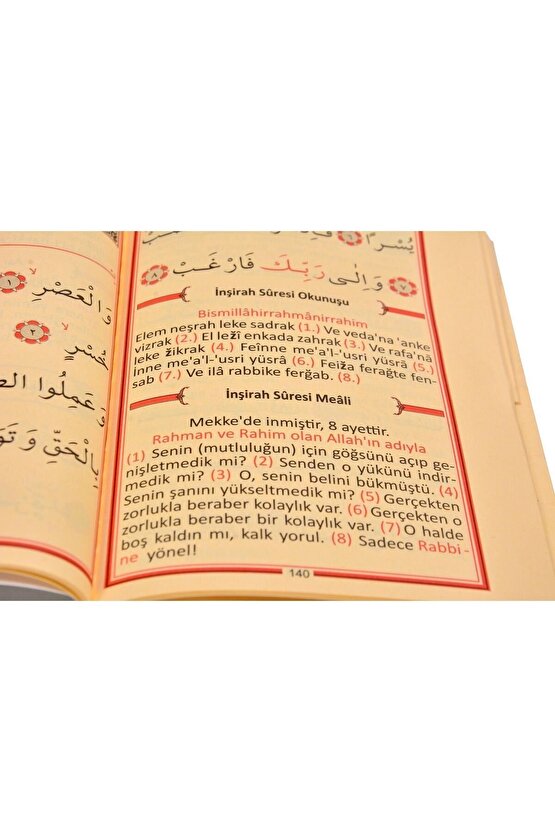 يُسْرًا ۙ ٦ فَاِذَا
وَاِلٰى رَبِّكَ فَارْغَبْ ٨
٧
İnşirah Sûresi Okunuşu
Bismillâhirrahmânirrahim
Elem neşrah leke sadrak (1.) Ve veda'na 'anke
vizrak (2.) El ležî enkada zahrak (3.) Ve rafa'nâ
leke žikrak (4.) Feînne me'a'l-'usri yüsrâ (5.)
İnne me'a'l-'usri yüsrâ (6.) Feiža ferağte fen-
sab (7.) Ve ilâ rabbike ferğab. (8.)
İnşirah Sûresi Meâli
Mekke'de inmiştir, 8 ayettir.
Rahman ve Rahim olan Allah'ın adıyla
(1) Senin (mutluluğun) için göğsünü açıp ge-
nişletmedik mi? (2) Senden o yükünü indir-
medik mi? (3) O, senin belini bükmüştü. (4)
Senin şanını yükseltmedik mi? (5) Gerçekten
zorlukla beraber kolaylık var. (6) Gerçekten o
zorlukla beraber bir kolaylık var. (7) O halde
boş kaldın mı, kalk yorul. (8) Sadece Rabbi-
ne yönel!
140
وَالْعَصْرِ ١
خُسْرٍ ٢
وَعَمِلُوا
بِالْحَقِّ وَتَوَ